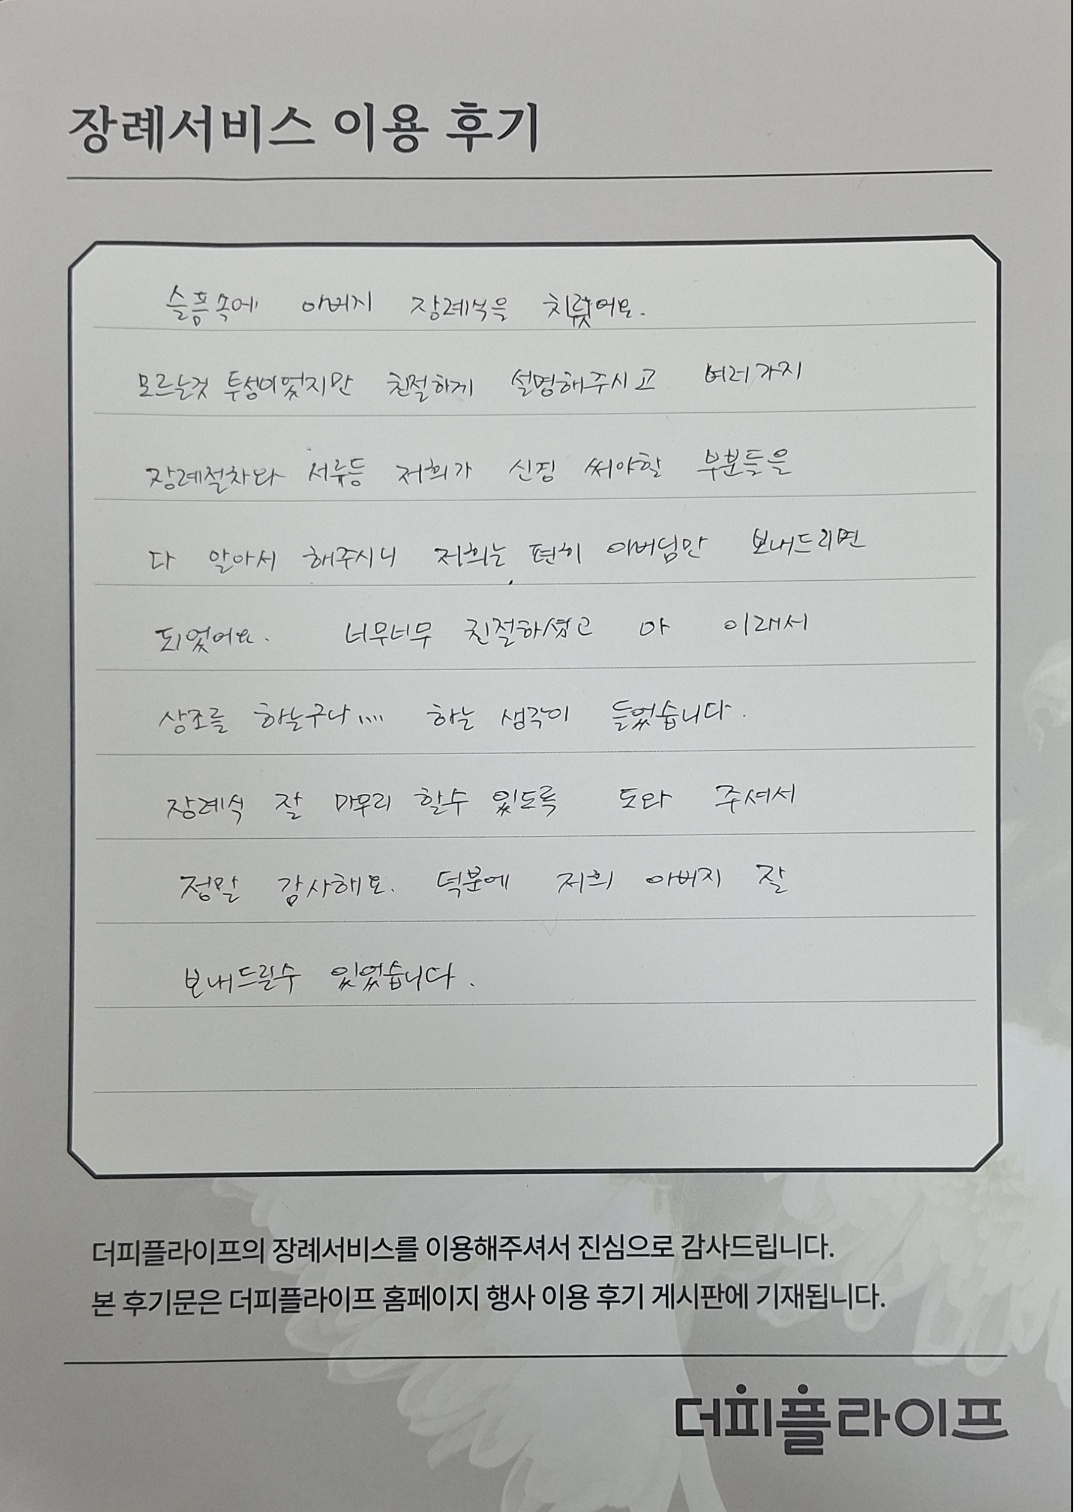 장례서비스 이용 후기
슬픔속에 아버지 장례식을 치뤘어요.
모르는것 투성이었지만 친절하게 설명해주시고 여러가지
장례절차와 서류등 저희가 신경 써야할 부분들을
다 알아서 해주시니 저희는 편히 아버님만 보내드리면
되었어요. 너무너무 친절하셨고 아 이래서
상조를 하는구나.... 하는 생각이 들었습니다.
장례식 잘 마무리 할수 있도록 도와 주셔서
정말 감사해요. 덕분에 저희 아버지 잘
보내드릴수 있었습니다.
더피플라이프의 장례서비스를 이용해주셔서 진심으로 감사드립니다.
본 후기문은 더피플라이프 홈페이지 행사 이용 후기 게시판에 기재됩니다.
더피플라이프